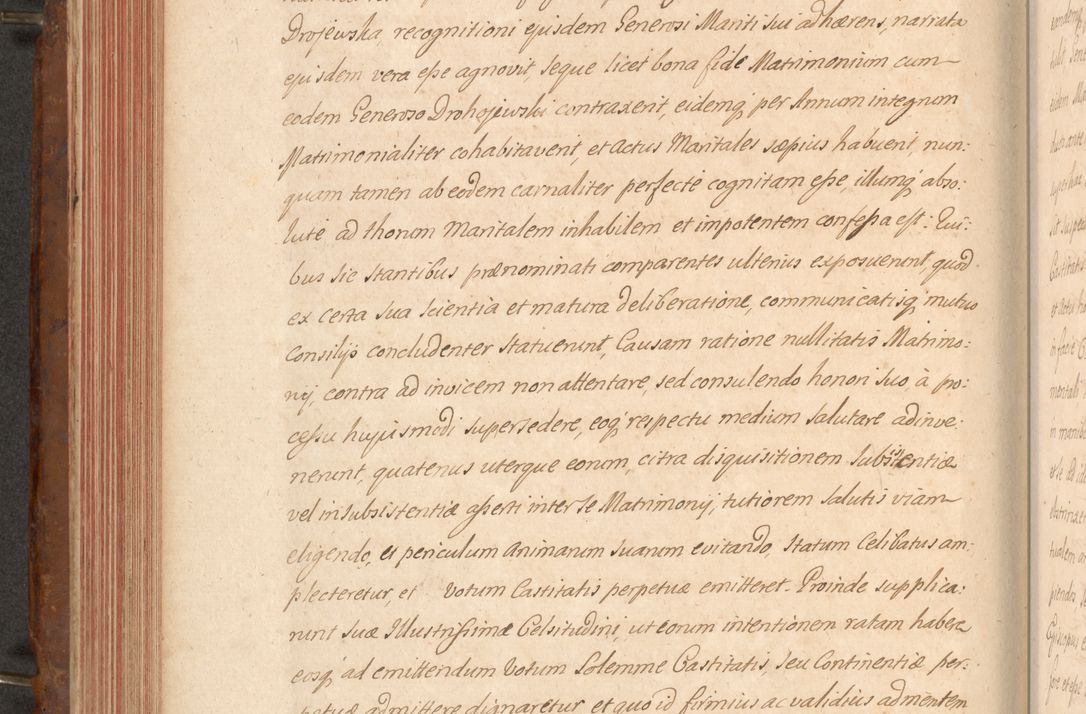 Drojewska, recognitioni ejusdem Generosi Mariti sui adhærens, narrata
ejusdem vera eße agnovit, seque licet bona fide Matrimonium cum
eodem Generoso Drohojewski contraxerit, eidemq́ per Annum integrum
Matrimonialiter cohabitaverit, et Actus Maritales sæpius habuerit, nun:
quam tamen ab eodem carnaliter perfecte cognitam eße, illumq́ abso:
lute ad thorum Maritalem inhabilem et impotentem confeßa est: Qui:
bus sic stantibus prænominati comparentes ulterius exposuerunt, quod
ex certa sua scientia et matura deliberatione, communicatisq́ mutuo
Consilijs concludenter statuerunt, Causam ratione nullitatis Matrimo:
nij, contra ad invicem non attentare, sed consulendo honori suo, à pro:
ceßu hujusmodi supersedere, eoq́ respectu medium salutare adinve:
nerunt, quatenus uterque eorum, citra disquisitionem subsistentiæ
vel insubsistentiæ aßerti inter se Matrimonij, tutiorem salutis viam
eligendo, et periculum Animarum suarum evitando, statum Celibatus am:
plecteretur, et Votum Castitatis perpetuæ emitteret. Proinde supplica:
runt suæ Illustrißimæ Celsitudini, ut eorum intentionem ratam habere
eosq́ ad emittendum Votum Solemne Castitatis, seu Continentiæ per:
petuæ admittere dignaretur, et quo id firmius ac validius ad mentem